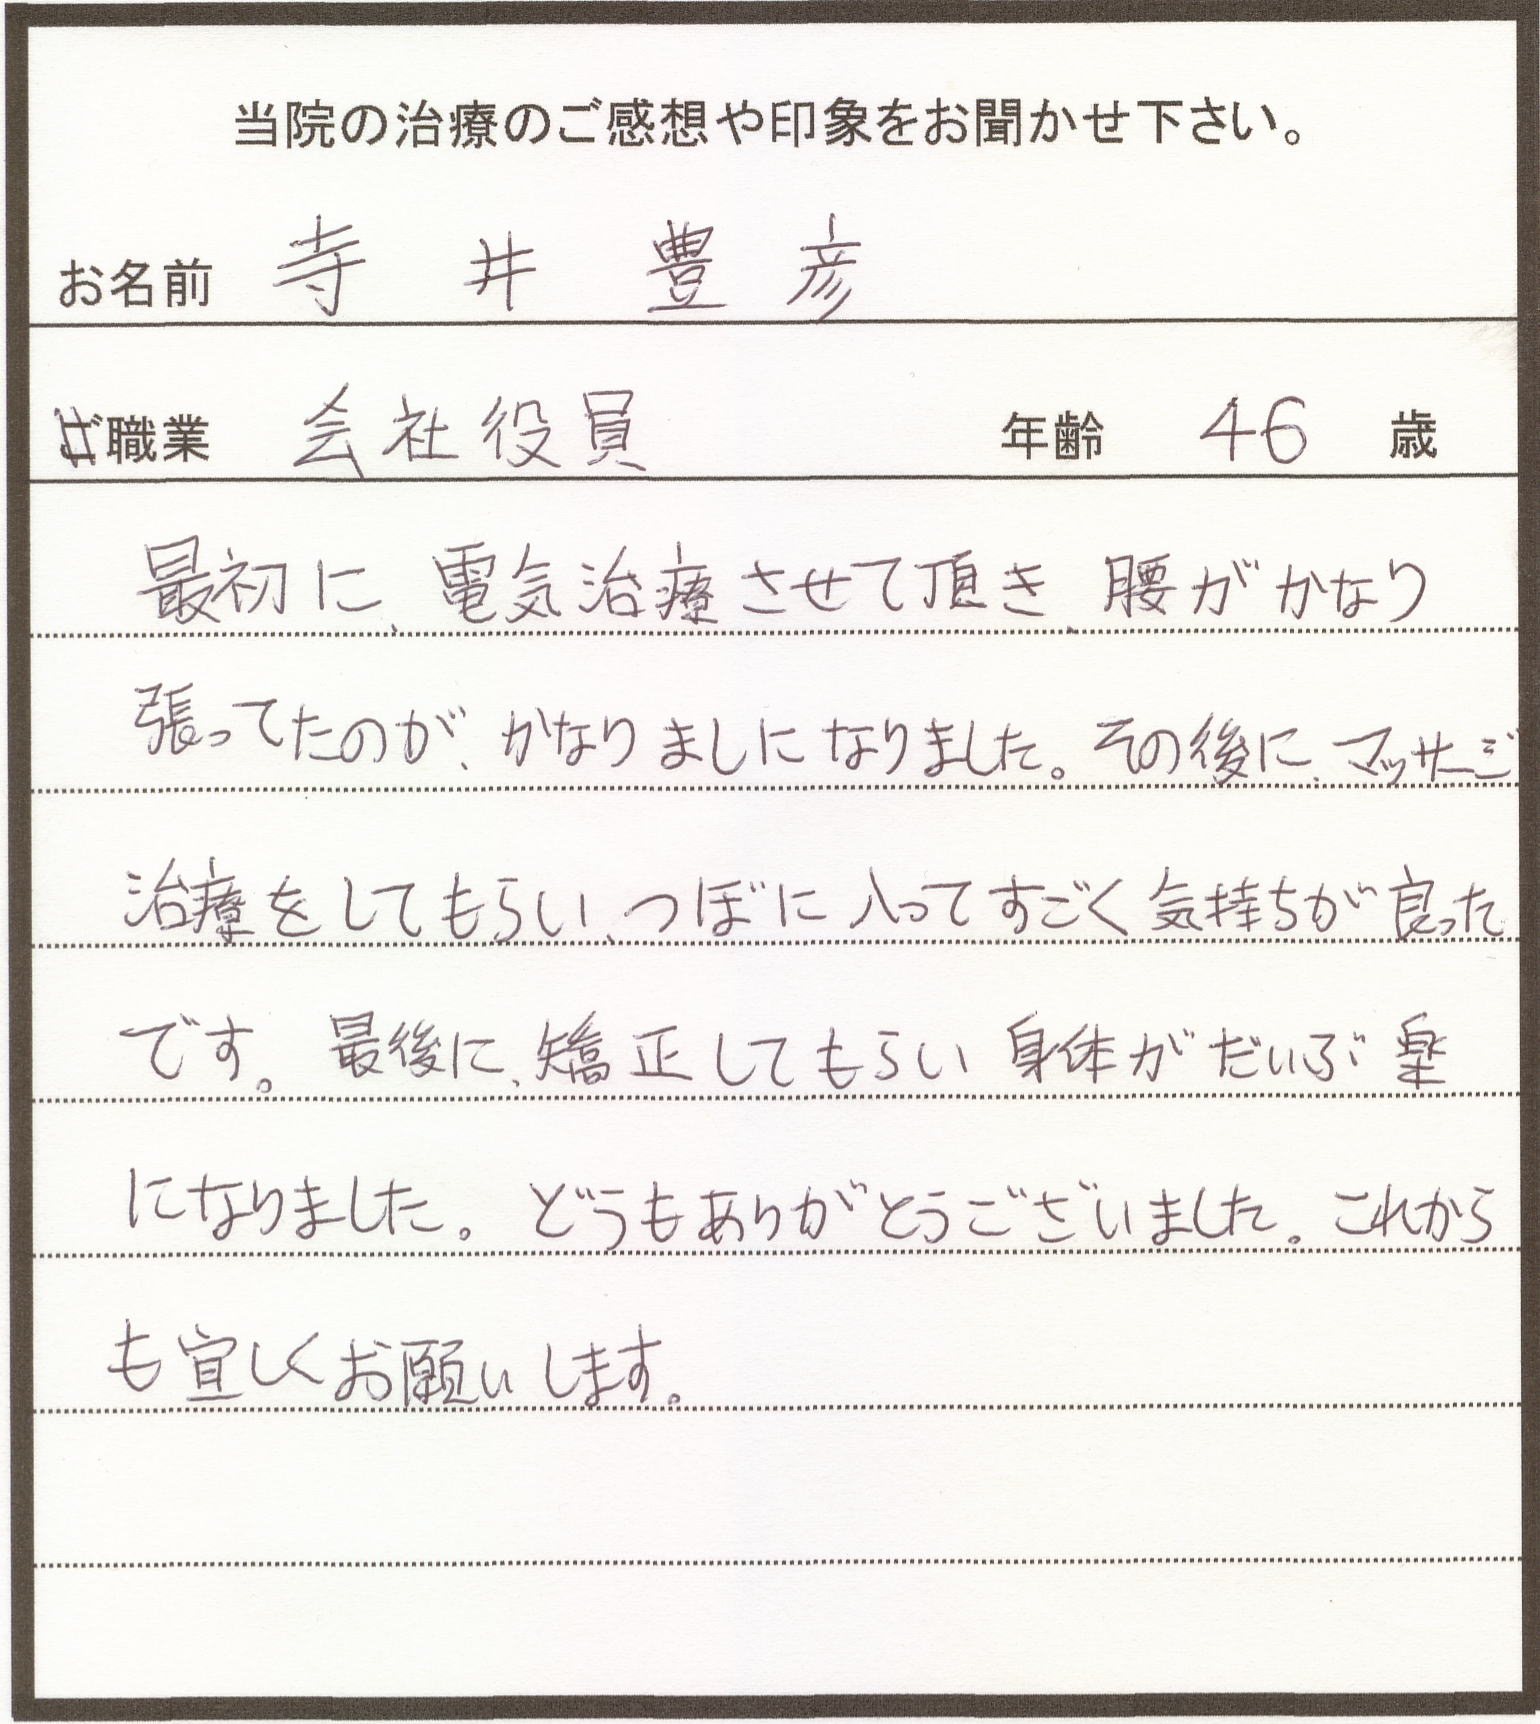 当院の治療のご感想や印象をお聞かせ下さい。
お名前 寺井 豊彦
ご職業 会社役員 年齢 46 歳
最初に、電気治療させて頂き、腰がかなり
張ってたのが、かなりましになりました。その後に、マッサージ
治療をしてもらい、つぼに入ってすごく気持ちが良った
です。最後に、矯正してもらい身体がだいぶ楽
になりました。どうもありがとうございました。これから
も宜しくお願いします。